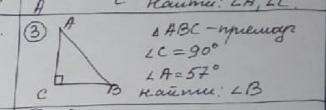 A
Найти: ∠A, ∠C.
③
A
C
B
△ABC – прямоуг
∠C = 90°
∠A = 57°
Найти: ∠B